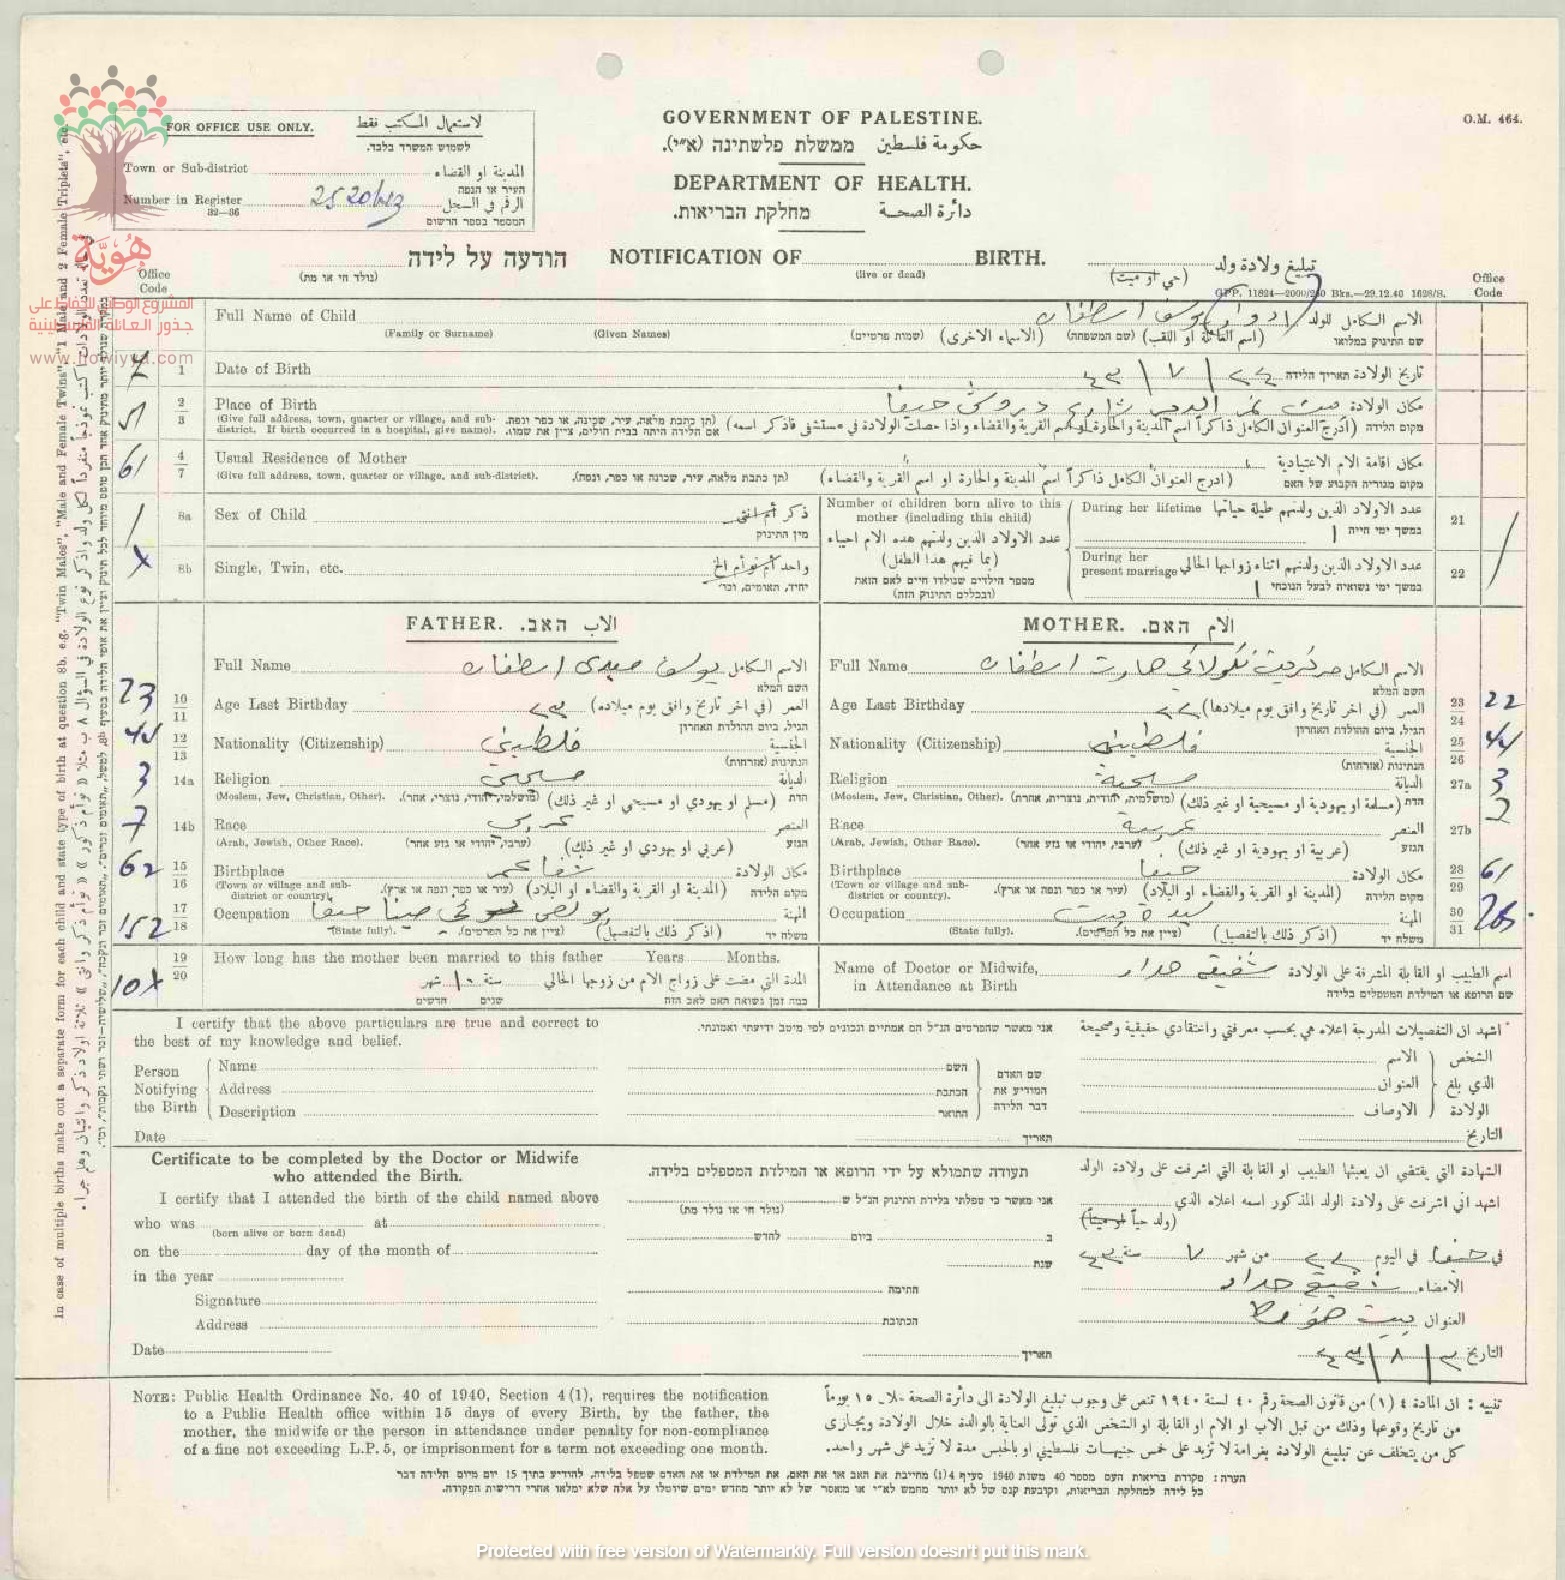 GOVERNMENT OF PALESTINE.
حكومة فلسطين ממשלת פלשתינה (א״י).
DEPARTMENT OF HEALTH.
دائرة الصحة מחלקת הבריאות.
O.M. 464.
FOR OFFICE USE ONLY. لاستعمال المكتب فقط
לשמוש המשרד בלבד.
Town or Sub-district المدينة او القضاء
העיר או הנפה
Number in Register 2520/43 الرقم في السجل
32—36 המספר בספר הרשום
هوية
المشروع الوطني للحفاظ على
جذور العائلة الفلسطينية
www.howiyya.com
NOTIFICATION OF BIRTH.
(live or dead)
הודעה על לידה
(נולד חי או מת)
تبليغ ولادة ولد
(حي او ميت)
GPP. 11824—2000/240 Bks.—29.12.40 1628/S.
Office Code
Office Code
Full Name of Child ادوار يوسف اسطفان الاسم الكامل للولد
(Family or Surname) (Given Names) (שמות פרטיים) (الاسماء الاخرى) (שם המשפחה) (اسم العائلة او اللقب) שם התינוק במלואו
1 Date of Birth ٢٢ / ٧ / ٤٣ تاريخ الولادة תאריך הלידה
2/3 Place of Birth حيفا مكان الولادة
(Give full address, town, quarter or village, and sub-district. If birth occurred in a hospital, give name). (תן כתבת מלאה, עיר, שכונה, או כפר ונפה. אם הלידה היתה בבית חולים, ציין את שמו). (أدرج العنوان الكامل ذاكراً اسم المدينة والحارة او اسم القرية والقضاء واذا حصلت الولادة في مستشفى فاذكر اسمه) מקום הלידה
61 4/7 Usual Residence of Mother مكان اقامة الام الاعتيادية
(Give full address, town, quarter or village, and sub-district). (תן כתבת מלאה, עיר, שכונה או כפר, ונפה). (ادرج العنوان الكامل ذاكراً اسم المدينة والحارة او اسم القرية والقضاء) מקום מגוריה הקבוע של האם
8a Sex of Child ذكر أم انثى
מין התינוק
8b Single, Twin, etc. واحد أم توأم الخ
יחיד, תאומים, וכו׳
Number of children born alive to this mother (including this child)
عدد الاولاد الذين ولدتهم هذه الام احياء
(بما فيهم هذا الطفل)
מספר הילדים שנולדו חיים לאם הזאת
(ובכללם התינוק הזה)
During her lifetime عدد الاولاد الذين ولدتهم طيلة حياتها 21
במשך ימי חייה ١
During her present marriage عدد الاولاد الذين ولدتهم اثناء زواجها الحالي 22
במשך ימי נשואיה לבעל הנוכחי ١
FATHER. الاب האב.
Full Name يوسف سعدى اسطفان الاسم الكامل
השם המלא
23 10/11 Age Last Birthday ٢٣ العمر (في اخر تاريخ وافق يوم ميلاده)
הגיל, ביום ההולדת האחרון
12/13 Nationality (Citizenship) فلسطيني الجنسية
הנתינות (אזרחות)
3 14a Religion مسيحي الديانة
(Moslem, Jew, Christian, Other). (מושלמי, יהודי, נוצרי, אחר). (مسلم او يهودي او مسيحي او غير ذلك) הדת
7 14b Race عربي العنصر
(Arab, Jewish, Other Race). (ערבי, יהודי או גזע אחר) (عربي او يهودي او غير ذلك) הגזע
62 15/16 Birthplace شفاعمر مكان الولادة
(Town or village and sub-district or country). (עיר או כפר ונפה או ארץ). (المدينة او القرية والقضاء او البلاد) מקום הלידה
152 17/18 Occupation بوليس في مينا حيفا المهنة
(State fully). (ציין את כל הפרטים). (اذكر ذلك بالتفصيل) משלח יד
MOTHER. الام האם.
Full Name اسطفان الاسم الكامل
השם המלא
Age Last Birthday ٢٢ العمر (في اخر تاريخ وافق يوم ميلادها) 23/24 22
הגיל, ביום ההולדת האחרון
Nationality (Citizenship) فلسطيني الجنسية 25/26
הנתינות (אזרחות)
Religion مسيحية الديانة 27a 3
(Moslem, Jew, Christian, Other). (מושלמית, יהודית, נוצרית, אחרת) (مسلمة او يهودية او مسيحية او غير ذلك) הדת
Race عربية العنصر 27b 2
(Arab, Jewish, Other Race). (ערבי, יהודי או גזע אחר) (عربية او يهودية او غير ذلك) הגזע
Birthplace حيفا مكان الولادة 28/29 61
(Town or village and sub-district or country). (עיר או כפר ונפה או ארץ). (المدينة او القرية والقضاء او البلاد) מקום הלידה
Occupation سيدة بيت المهنة 30/31
(State fully). (ציין את כל הפרטים). (اذكر ذلك بالتفصيل) משלח יד
19/20 How long has the mother been married to this father Years Months.
المدة التي مضت على زواج الام من زوجها الحالي سنة ١٠ شهر
כמה זמן נשואה האם לאב הזה שנים חדשים
Name of Doctor or Midwife, in Attendance at Birth شفيقه حداد اسم الطبيب او القابلة المشرفة على الولادة
שם הרופא או המילדת המטפלים בלידה
I certify that the above particulars are true and correct to the best of my knowledge and belief.
אני מאשר שהפרטים הנ״ל הם אמתיים ונכונים לפי מיטב ידיעתי ואמונתי.
اشهد ان التفصيلات المدرجة اعلاه هي بحسب معرفتي واعتقادي حقيقية وصحيحة
Person Notifying the Birth
Name השם الاسم
Address הכתבת العنوان
Description התואר الاوصاف
שם האדם המודיע את דבר הלידה
الشخص الذي بلغ الولادة
Date תאריך التاريخ
Certificate to be completed by the Doctor or Midwife who attended the Birth.
תעודה שתמולא על ידי הרופא או המילדת המטפלים בלידה.
الشهادة التي يقتضي ان يعبئها الطبيب او القابلة التي اشرفت على ولادة الولد
I certify that I attended the birth of the child named above
who was at
(born alive or born dead)
on the day of the month of
in the year
Signature
Address
Date
אני מאשר כי טפלתי בלידת התינוק הנ״ל ש
(נולד חי או נולד מת)
ב ביום לחדש
שנת
החתימה
הכתובת
תאריך
اشهد اني اشرفت على ولادة الولد المذكور اسمه اعلاه الذي
(ولد حياً او ميتاً)
في حيفا في اليوم ٢٢ من شهر ٧ سنة ٤٣
الامضاء شفيقه حداد
العنوان
التاريخ ٣ / ٨ / ٤٣
NOTE: Public Health Ordinance No. 40 of 1940, Section 4(1), requires the notification
to a Public Health office within 15 days of every Birth, by the father, the
mother, the midwife or the person in attendance under penalty for non-compliance
of a fine not exceeding L.P. 5, or imprisonment for a term not exceeding one month.
تنبيه : ان المادة ٤ (١) من قانون الصحة رقم ٤٠ لسنة ١٩٤٠ تنص على وجوب تبليغ الولادة الى دائرة الصحة خلال ١٥ يوماً
من تاريخ وقوعها وذلك من قبل الاب او الام او القابلة او الشخص الذي تولى العناية بالوالدة خلال الولادة ويجازى
كل من يتخلف عن تبليغ الولادة بغرامة لا تزيد على خمس جنيهات فلسطيني او بالحبس مدة لا تزيد على شهر واحد.
הערה : פקודת בריאות העם מספר 40 משנת 1940 סעיף 4(1) מחייבת את האב או את האם, את המילדת או את האדם שטפל בלידה, להודיע בתוך 15 יום מיום הלידה דבר
כל לידה למחלקת הבריאות, וקובעת קנס של לא יותר מחמש לא״י או מאסר של לא יותר מחדש ימים שיוטלו על אלה שלא ימלאו אחרי דרישות הפקודה.
In case of multiple births make out a separate form for each child and state type of birth at question 8b. e.g. "Twin Males", "Male and Female Twins", "1 Male and 2 Female Triplets", etc.
Protected with free version of Watermarkly. Full version doesn't put this mark.